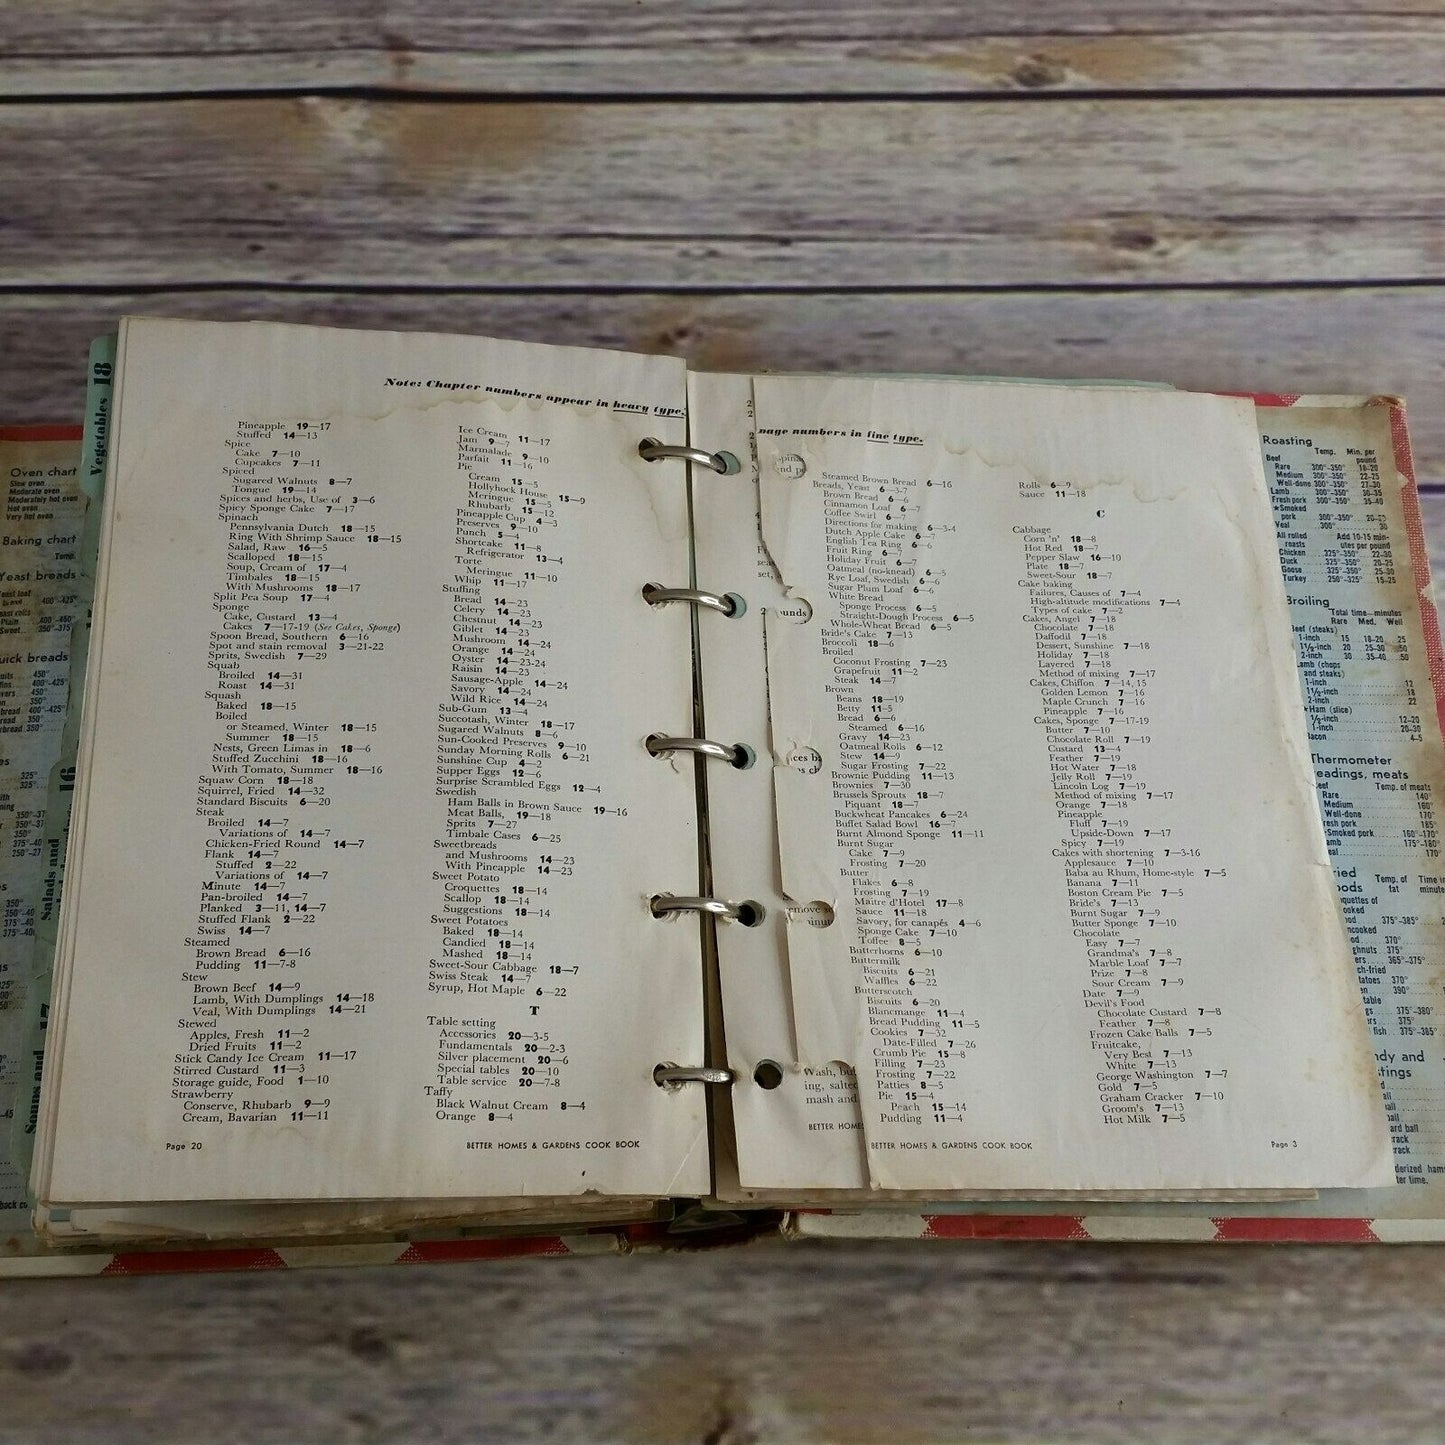 Note: Chapter numbers appear in heavy type.
Pineapple 19—17
Stuffed 14—13
Spice
Cake 7—10
Cupcakes 7—11
Spiced
Sugared Walnuts 8—7
Tongue 19—14
Spices and herbs, Use of 3—6
Spicy Sponge Cake 7—17
Spinach
Pennsylvania Dutch 18—15
Ring With Shrimp Sauce 18—15
Salad, Raw 16—5
Scalloped 18—15
Soup, Cream of 17—4
Timbales 18—15
With Mushrooms 18—17
Split Pea Soup 17—4
Sponge
Cake, Custard 13—4
Cakes 7—17-19 (See Cakes, Sponge)
Spoon Bread, Southern 6—16
Spot and stain removal 3—21-22
Sprits, Swedish 7—29
Squab
Broiled 14—31
Roast 14—31
Squash
Baked 18—15
Boiled
or Steamed, Winter 18—15
Summer 18—15
Nests, Green Limas in 18—6
Stuffed Zucchini 18—16
With Tomato, Summer 18—16
Squaw Corn 18—18
Squirrel, Fried 14—32
Standard Biscuits 6—20
Steak
Broiled 14—7
Variations of 14—7
Chicken-Fried Round 14—7
Flank 14—7
Stuffed 2—22
Variations of 14—7
Minute 14—7
Pan-broiled 14—7
Planked 3—11, 14—7
Stuffed Flank 2—22
Swiss 14—7
Steamed
Brown Bread 6—16
Pudding 11—7-8
Stew
Brown Beef 14—9
Lamb, With Dumplings 14—18
Veal, With Dumplings 14—21
Stewed
Apples, Fresh 11—2
Dried Fruits 11—2
Stick Candy Ice Cream 11—17
Stirred Custard 11—3
Storage guide, Food 1—10
Strawberry
Conserve, Rhubarb 9—9
Cream, Bavarian 11—11
Ice Cream 11—17
Jam 9—7
Marmalade 9—10
Parfait 11—16
Pie
Cream 15—5
Hollyhock House 15—9
Meringue 15—5
Rhubarb 15—12
Pineapple Cup 4—3
Preserves 9—10
Punch 5—4
Shortcake 11—8
Refrigerator 13—4
Torte
Meringue 11—10
Whip 11—17
Stuffing
Bread 14—23
Celery 14—23
Chestnut 14—23
Giblet 14—23
Mushroom 14—24
Orange 14—24
Oyster 14—23-24
Raisin 14—23
Sausage-Apple 14—24
Savory 14—24
Wild Rice 14—24
Sub-Gum 13—4
Succotash, Winter 18—17
Sugared Walnuts 8—6
Sun-Cooked Preserves 9—10
Sunday Morning Rolls 6—21
Sunshine Cup 4—2
Supper Eggs 12—6
Surprise Scrambled Eggs 12—4
Swedish
Ham Balls in Brown Sauce 19—16
Meat Balls, 19—18
Sprits 7—27
Timbale Cases 6—25
Sweetbreads
and Mushrooms 14—23
With Pineapple 14—23
Sweet Potato
Croquettes 18—14
Scallop 18—14
Suggestions 18—14
Sweet Potatoes
Baked 18—14
Candied 18—14
Mashed 18—14
Sweet-Sour Cabbage 18—7
Swiss Steak 14—7
Syrup, Hot Maple 6—22
T
Table setting
Accessories 20—3-5
Fundamentals 20—2-3
Silver placement 20—6
Special tables 20—10
Table service 20—7-8
Taffy
Black Walnut Cream 8—4
Orange 8—4
Page 20
BETTER HOMES & GARDENS COOK BOOK
page numbers in fine type.
Steamed Brown Bread 6—16
Breads, Yeast 6—3-7
Brown Bread 6—6
Cinnamon Loaf 6—7
Coffee Swirl 6—7
Directions for making 6—3-4
Dutch Apple Cake 6—7
English Tea Ring 6—6
Fruit Ring 6—7
Holiday Fruit 6—7
Oatmeal (no-knead) 6—5
Rye Loaf, Swedish 6—6
Sugar Plum Loaf 6—6
White Bread
Sponge Process 6—5
Straight-Dough Process 6—5
Whole-Wheat Bread 6—5
Bride's Cake 7—13
Broccoli 18—6
Broiled
Coconut Frosting 7—23
Grapefruit 11—2
Steak 14—7
Brown
Beans 18—19
Betty 11—5
Bread 6—6
Steamed 6—16
Gravy 14—23
Oatmeal Rolls 6—12
Stew 14—9
Sugar Frosting 7—22
Brownie Pudding 11—13
Brownies 7—30
Brussels Sprouts 18—7
Piquant 18—7
Buckwheat Pancakes 6—24
Buffet Salad Bowl 16—7
Burnt Almond Sponge 11—11
Burnt Sugar
Cake 7—9
Frosting 7—20
Butter
Flakes 6—8
Frosting 7—19
Maitre d'Hotel 17—8
Sauce 11—18
Savory, for canapés 4—6
Sponge Cake 7—10
Toffee 8—5
Butterhorns 6—10
Buttermilk
Biscuits 6—21
Waffles 6—22
Butterscotch
Biscuits 6—20
Blancmange 11—4
Bread Pudding 11—5
Cookies 7—32
Date-Filled 7—26
Crumb Pie 15—8
Filling 7—23
Frosting 7—22
Patties 8—5
Pie 15—4
Peach 15—14
Pudding 11—4
Rolls 6—9
Sauce 11—18
C
Cabbage
Corn 'n' 18—8
Hot Red 18—7
Pepper Slaw 16—10
Plate 18—7
Sweet-Sour 18—7
Cake baking
Failures, Causes of 7—4
High-altitude modifications 7—4
Types of cake 7—2
Cakes, Angel 7—18
Chocolate 7—18
Daffodil 7—18
Dessert, Sunshine 7—18
Holiday 7—18
Layered 7—18
Method of mixing 7—17
Cakes, Chiffon 7—14, 15
Golden Lemon 7—16
Maple Crunch 7—16
Pineapple 7—16
Cakes, Sponge 7—17-19
Butter 7—10
Chocolate Roll 7—19
Custard 13—4
Feather 7—19
Hot Water 7—18
Jelly Roll 7—19
Lincoln Log 7—19
Method of mixing 7—17
Orange 7—18
Pineapple
Fluff 7—19
Upside-Down 7—17
Spicy 7—19
Cakes with shortening 7—3-16
Applesauce 7—10
Baba au Rhum, Home-style 7—5
Banana 7—11
Boston Cream Pie 7—5
Bride's 7—13
Burnt Sugar 7—9
Butter Sponge 7—10
Chocolate
Easy 7—7
Grandma's 7—8
Marble Loaf 7—7
Prize 7—8
Sour Cream 7—9
Date 7—9
Devil's Food
Chocolate Custard 7—8
Feather 7—8
Frozen Cake Balls 7—5
Fruitcake,
Very Best 7—13
White 7—13
George Washington 7—7
Gold 7—5
Graham Cracker 7—10
Groom's 7—13
Hot Milk 7—5
BETTER HOMES & GARDENS COOK BOOK
Page 3
Vegetables 18
Salads and
16
Soups and
17
Oven chart
Slow oven
Moderate oven
Moderately hot oven
Hot oven
Very hot oven
Baking chart
Temp.
Yeast breads
Wash, bu
ing, salted
mash and
BETTER HOME
Roasting
Temp. Min. per
pound
Beef
Rare 300°-350° 18-20
Medium 300°-350° 22-25
Well-done 300°-350° 27-30
Lamb 300°-350° 30-35
Fresh pork 300°-350° 35-40
★Smoked
pork 300°-350°
Veal 300° 30
All rolled Add 10-15 min-
roasts utes per pound
Chicken 325°-350° 22-30
Duck 325°-350° 20-25
Goose 325°-350° 25-30
Turkey 250°-325° 15-25
Broiling
Total time—minutes
Rare Med. Well
Beef (steaks)
1-inch 15 18-20 25
1½-inch 20 25-30 50
2-inch 30 35-40 50
Lamb (chops
and steaks)
1-inch 12
1½-inch 18
2-inch 22
★Ham (slice)
1½-inch 12-20
1-inch 20-30
Bacon 4-5
Thermometer
readings, meats
Temp. of meats
Rare 140°
Medium 160°
Well-done 170°
Fresh pork 185°
★Smoked pork 160°-170°
Lamb 175°-180°
Veal 170°